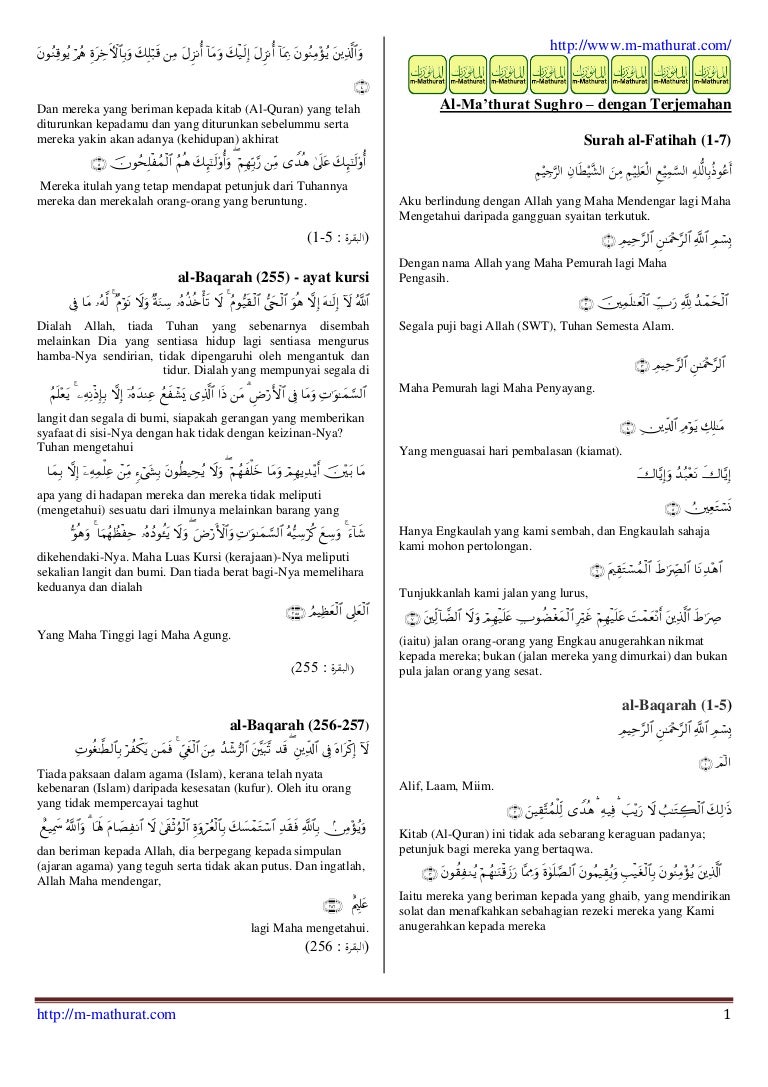 http://www.m-mathurat.com/
m-Mathurat m-Mathurat m-Mathurat m-Mathurat m-Mathurat m-Mathurat m-Mathurat m-Mathurat
Al-Ma’thurat Sughro – dengan Terjemahan
Surah al-Fatihah (1-7)
أَعُوذُ بِاللَّهِ السَّمِيْعِ الْعَلِيْمِ مِنَ الشَّيْطَانِ الرَّجِيْمِ
Aku berlindung dengan Allah yang Maha Mendengar lagi Maha
Mengetahui daripada gangguan syaitan terkutuk.
بِسْمِ ٱللَّهِ ٱلرَّحْمَـٰنِ ٱلرَّحِيمِ ﴿١﴾
Dengan nama Allah yang Maha Pemurah lagi Maha
Pengasih.
ٱلْحَمْدُ لِلَّهِ رَبِّ ٱلْعَـٰلَمِينَ ﴿٢﴾
Segala puji bagi Allah (SWT), Tuhan Semesta Alam.
ٱلرَّحْمَـٰنِ ٱلرَّحِيمِ ﴿٣﴾
Maha Pemurah lagi Maha Penyayang.
مَـٰلِكِ يَوْمِ ٱلدِّينِ ﴿٤﴾
Yang menguasai hari pembalasan (kiamat).
إِيَّاكَ نَعْبُدُ وَإِيَّاكَ
نَسْتَعِينُ ﴿٥﴾
Hanya Engkaulah yang kami sembah, dan Engkaulah sahaja
kami mohon pertolongan.
ٱهْدِنَا ٱلصِّرَٰطَ ٱلْمُسْتَقِيمَ ﴿٦﴾
Tunjukkanlah kami jalan yang lurus,
صِرَٰطَ ٱلَّذِينَ أَنْعَمْتَ عَلَيْهِمْ غَيْرِ ٱلْمَغْضُوبِ عَلَيْهِمْ وَلَا ٱلضَّآلِّينَ ﴿٧﴾
(iaitu) jalan orang-orang yang Engkau anugerahkan nikmat
kepada mereka; bukan (jalan mereka yang dimurkai) dan bukan
pula jalan orang yang sesat.
al-Baqarah (1-5)
بِسْمِ ٱللَّهِ ٱلرَّحْمَـٰنِ ٱلرَّحِيمِ
الٓمٓ ﴿١﴾
Alif, Laam, Miim.
ذَٰلِكَ ٱلْكِتَـٰبُ لَا رَيْبَ ۛ فِيهِ ۛ هُدًى لِّلْمُتَّقِينَ ﴿٢﴾
Kitab (Al-Quran) ini tidak ada sebarang keraguan padanya;
petunjuk bagi mereka yang bertaqwa.
ٱلَّذِينَ يُؤْمِنُونَ بِٱلْغَيْبِ وَيُقِيمُونَ ٱلصَّلَوٰةَ وَمِمَّا رَزَقْنَـٰهُمْ يُنفِقُونَ ﴿٣﴾
Iaitu mereka yang beriman kepada yang ghaib, yang mendirikan
solat dan menafkahkan sebahagian rezeki mereka yang Kami
anugerahkan kepada mereka
وَٱلَّذِينَ يُؤْمِنُونَ بِمَآ أُنزِلَ إِلَيْكَ وَمَآ أُنزِلَ مِن قَبْلِكَ وَبِٱلْأَخِرَةِ هُمْ يُوقِنُونَ
﴿٤﴾
Dan mereka yang beriman kepada kitab (Al-Quran) yang telah
diturunkan kepadamu dan yang diturunkan sebelummu serta
mereka yakin akan adanya (kehidupan) akhirat
أُو۟لَـٰٓئِكَ عَلَىٰ هُدًى مِّن رَّبِّهِمْ ۖ وَأُو۟لَـٰٓئِكَ هُمُ ٱلْمُفْلِحُونَ ﴿٥﴾
Mereka itulah yang tetap mendapat petunjuk dari Tuhannya
mereka dan merekalah orang-orang yang beruntung.
(البقرة : 5-1)
al-Baqarah (255) - ayat kursi
ٱللَّهُ لَآ إِلَـٰهَ إِلَّا هُوَ ٱلْحَىُّ ٱلْقَيُّومُ ۚ لَا تَأْخُذُهُۥ سِنَةٌ وَلَا نَوْمٌ ۚ لَّهُۥ مَا فِى
Dialah Allah, tiada Tuhan yang sebenarnya disembah
melainkan Dia yang sentiasa hidup lagi sentiasa mengurus
hamba-Nya sendirian, tidak dipengaruhi oleh mengantuk dan
tidur. Dialah yang mempunyai segala di
ٱلسَّمَـٰوَٰتِ وَمَا فِى ٱلْأَرْضِ ۗ مَن ذَا ٱلَّذِى يَشْفَعُ عِندَهُۥٓ إِلَّا بِإِذْنِهِۦ ۚ يَعْلَمُ
langit dan segala di bumi, siapakah gerangan yang memberikan
syafaat di sisi-Nya dengan hak tidak dengan keizinan-Nya?
Tuhan mengetahui
مَا بَيْنَ أَيْدِيهِمْ وَمَا خَلْفَهُمْ ۖ وَلَا يُحِيطُونَ بِشَىْءٍ مِّنْ عِلْمِهِۦٓ إِلَّا بِمَا
apa yang di hadapan mereka dan mereka tidak meliputi
(mengetahui) sesuatu dari ilmunya melainkan barang yang
شَآءَ ۚ وَسِعَ كُرْسِيُّهُ ٱلسَّمَـٰوَٰتِ وَٱلْأَرْضَ ۖ وَلَا يَـُٔودُهُۥ حِفْظُهُمَا ۚ وَهُوَ
dikehendaki-Nya. Maha Luas Kursi (kerajaan)-Nya meliputi
sekalian langit dan bumi. Dan tiada berat bagi-Nya memelihara
keduanya dan dialah
ٱلْعَلِىُّ ٱلْعَظِيمُ ﴿٢٥٥﴾
Yang Maha Tinggi lagi Maha Agung.
(البقرة : 255)
al-Baqarah (256-257)
لَآ إِكْرَاهَ فِى ٱلدِّينِ ۖ قَد تَّبَيَّنَ ٱلرُّشْدُ مِنَ ٱلْغَىِّ ۚ فَمَن يَكْفُرْ بِٱلطَّـٰغُوتِ
Tiada paksaan dalam agama (Islam), kerana telah nyata
kebenaran (Islam) daripada kesesatan (kufur). Oleh itu orang
yang tidak mempercayai taghut
وَيُؤْمِنۢ بِٱللَّهِ فَقَدِ ٱسْتَمْسَكَ بِٱلْعُرْوَةِ ٱلْوُثْقَىٰ لَا ٱنفِصَامَ لَهَا ۗ وَٱللَّهُ سَمِيعٌ
dan beriman kepada Allah, dia berpegang kepada simpulan
(ajaran agama) yang teguh serta tidak akan putus. Dan ingatlah,
Allah Maha mendengar,
عَلِيمٌ ﴿٢٥٦﴾
lagi Maha mengetahui.
(البقرة : 256)
http://m-mathurat.com
1